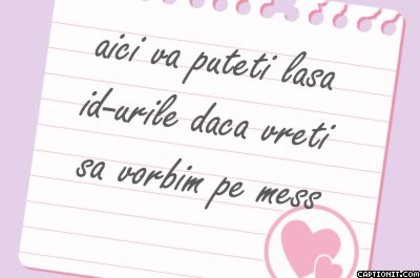 aici va puteti lasa
id-urile daca vreti
sa vorbim pe mess
CAPTIONIT.COM